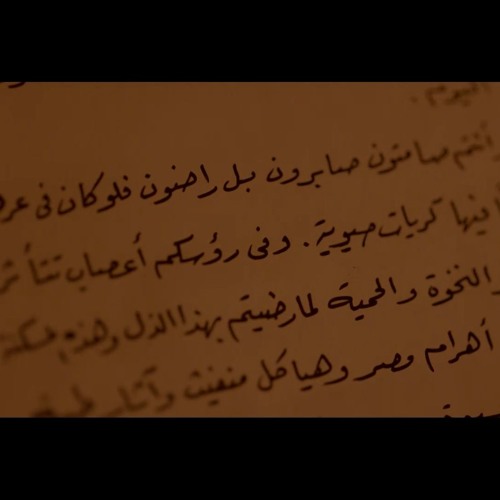 اليوم.
وأنتم صامتون صابرون بل راضون فلو كان في
فيها كريات حيوية. وفي رؤسكم أعصاب تتأثر
والنخوة والحمية لما رضيتم بهذا الذل وهذه
أهرام مصر وهياكل منفيت وآثار